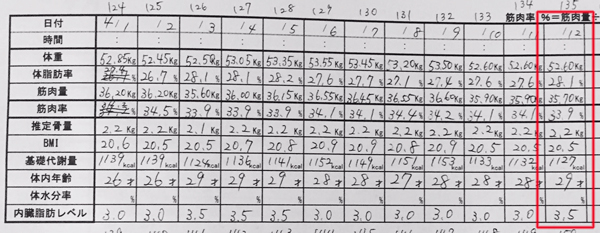 124 125 126 127 128 129 130 131 132 133 134 135
筋肉率 %=筋肉量÷
日付 4/1 /2 /3 /4 /5 /6 /7 /8 /9 /10 /11 /12
時間 : : : : : : : : : : : :
体重 52.85Kg 52.45Kg 52.50Kg 53.05Kg 53.35Kg 53.55Kg 53.45Kg 53.20Kg 53.50Kg 52.60Kg 52.60Kg 52.40Kg
体脂肪率 26.7% 28.1% 28.1% 28.2% 27.6% 27.7% 27.1% 27.4% 27.6% 27.6% 28.1%
筋肉量 36.20Kg 36.20Kg 35.60Kg 36.00Kg 36.15Kg 36.55Kg 36.45Kg 36.55Kg 36.60Kg 35.90Kg 35.90Kg 35.70Kg
筋肉率 34.5% 33.9% 33.9% 33.9% 34.1% 34.1% 34.4% 34.2% 34.1% 34.1% 33.9%
推定骨量 2.2Kg 2.2Kg 2.1Kg 2.2Kg 2.2Kg 2.2Kg 2.2Kg 2.2Kg 2.2Kg 2.2Kg 2.2Kg 2.2Kg
BMI 20.6 20.5 20.5 20.7 20.8 20.9 20.9 20.8 20.9 20.5 20.5 20.5
基礎代謝量 1139kcal 1139kcal 1124kcal 1136kcal 1141kcal 1152kcal 1149kcal 1151kcal 1153kcal 1133kcal 1132kcal 1127kcal
体内年齢 26才 26才 29才 29才 29才 28才 28才 27才 28才 28才 28才 29才
体水分率 % % % % % % % % % % % %
内臓脂肪レベル 3.0 3.0 3.5 3.5 3.5 3.0 3.0 3.0 3.0 3.0 3.0 3.5